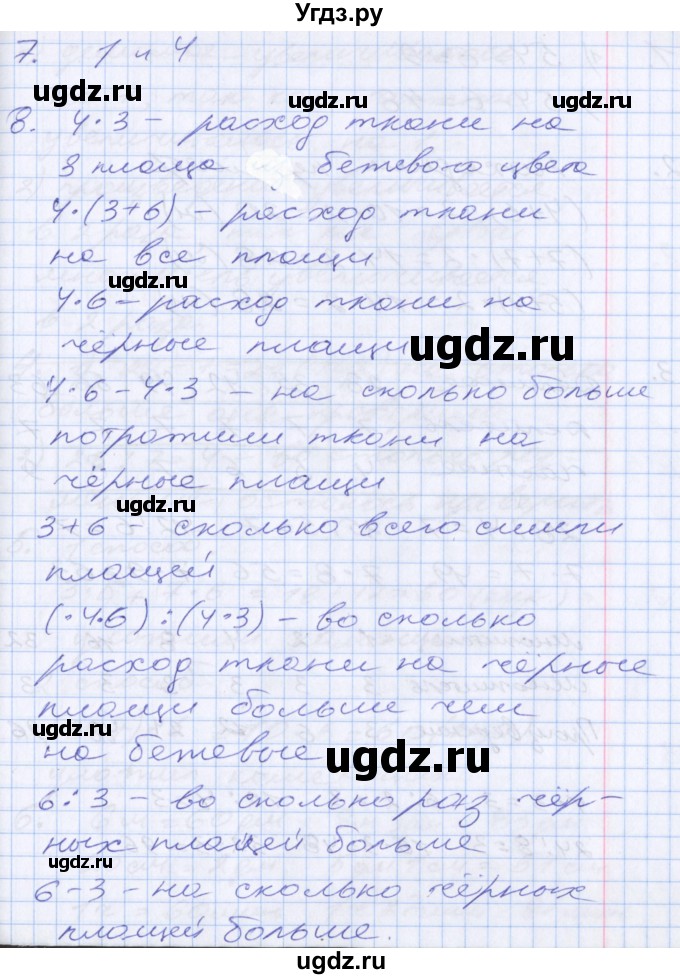 Угдз.ру
7. 1 и 4
ugdz.ru
ugdz.ru
8. 4·3 – расход ткани на
3 плаща бежевого цвета
ugdz.ru
4·(3+6) – расход ткани
на все плащи
ugdz.ru
4·6 – расход ткани на
чёрные плащи
ugdz.ru
4·6 – 4·3 – на сколько больше
потратили ткани на
чёрные плащи
ugdz.ru
3+6 – сколько всего сшили
плащей
ugdz.ru
(·4·6):(4·3) – во сколько
расход ткани на чёрные
плащи больше чем
ugdz.ru
на бежевые
ugdz.ru
6:3 – во сколько раз чёр-
ных плащей больше
ugdz.ru
6–3 – на сколько чёрных
плащей больше.
ugdz.ru